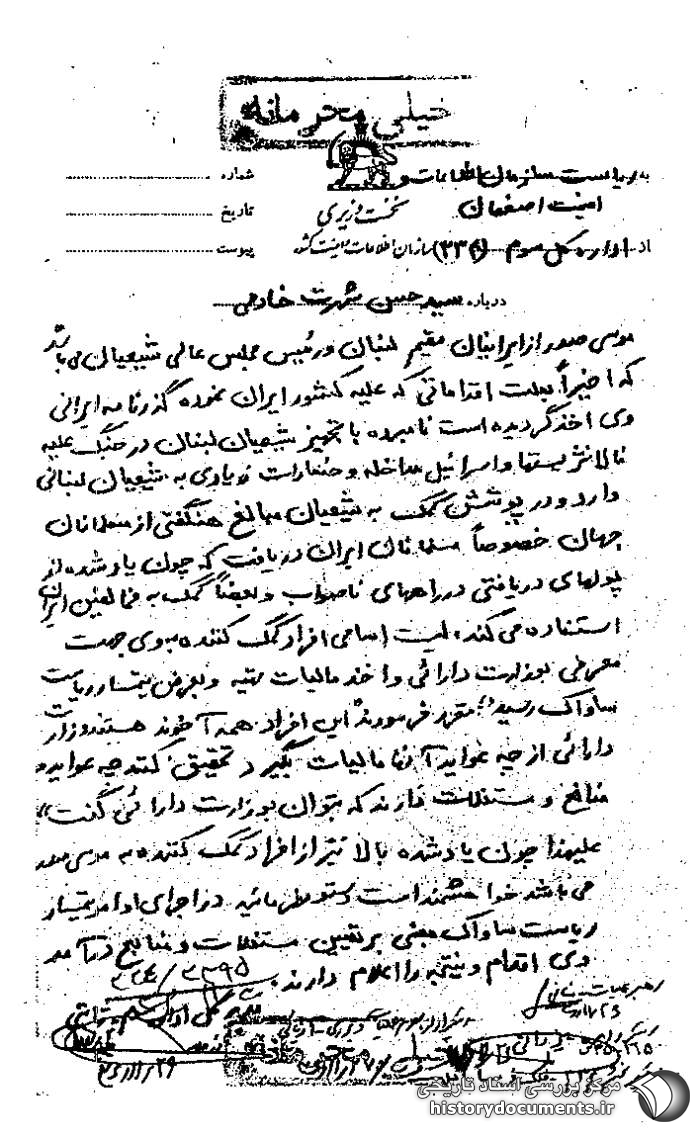 خیلی محرمانه
به ریاست سازمان اطلاعات و
شماره
امنیت اصفهان
نخست وزیری
تاریخ
از اداره کل سوم (۳۳۸)
سازمان اطلاعات و امنیت کشور
پیوست
درباره سید حسن شهرت خادمی
موسی صدر از ایرانیان مقیم لبنان و رئیس مجلس عالی شیعیان می باشد
که اخیراً بعلت اقداماتی که علیه کشور ایران نموده گذرنامه ایرانی
وی اخذ گردیده است نامبرده با تجهیز شیعیان لبنان در جنگ علیه
فالانژیستها و اسرائیل مداخله و خسارات زیادی به شیعیان لبنانی
دارد و در پوشش کمک به شیعیان مبالغ هنگفتی از مسلمانان
جهان خصوصاً مسلمانان ایران دریافت که چون یاد شده از
پولهای دریافتی در راههای ناصواب و بعضاً کمک به مخالفین ایران
استفاده می کند، لیست اسامی افراد کمک کننده بوی جهت
معرفی بوزارت دارائی و اخذ مالیات تهیه و بعرض تیمسار ریاست
ساواک رسید مقرر فرمودند این افراد همه آخوند هستند وزارت
دارائی از چه عواید آنها مالیات بگیرد تحقیق کنند چه عواید و
منافع و مستغلات دارند که بتوان بوزارت دارائی گفت"
علیهذا چون یاد شده بالا نیز از افراد کمک کننده به موسی صدر
می باشد خواهشمند است دستور فرمائید در اجرای اوامر تیمسار
ریاست ساواک مبنی بر تعیین مستغلات و منابع درآمد
وی اقدام و نتیجه را اعلام دارند.
مدیر کل اداره سوم ثابتی
خیلی محرمانه
مرکز بررسی اسناد تاریخی
historydocuments.ir